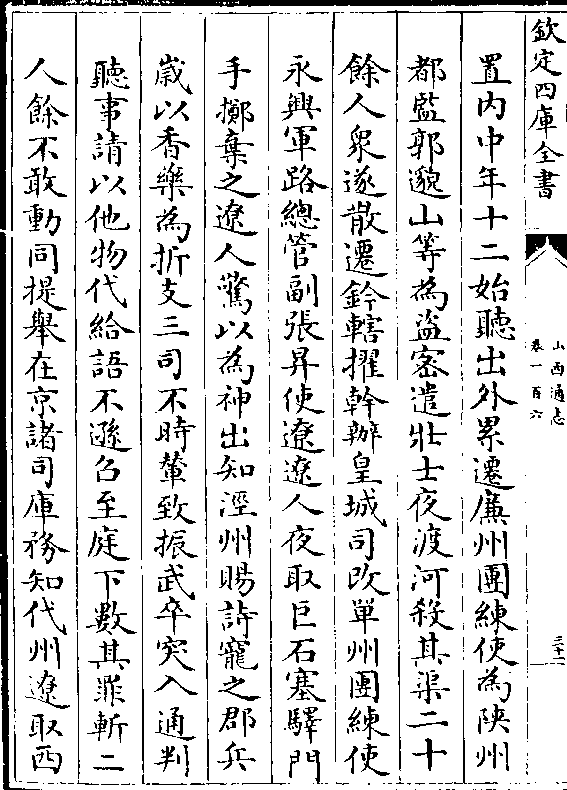 欽定四庫全書
山西通志
卷一百六
三十二
置內中年十二始聽出外累遷廉州團練使為陜州
都監郭邈山等為盜密遣壯士夜渡河殺其渠二十
餘人衆遂散遷鈐轄擢幹辦皇城司改單州團練使
永興軍路總管副張昇使遼遼人夜取巨石塞驛門
手擲棄之遼人驚以為神出知涇州賜詩寵之郡兵
歲以香藥為折支三司不時輦致振武卒突入通判
聽事請以他物代給語不遜召至庭下數其罪斬二
人餘不敢動同提舉在京諸司庫務知代州遼取西